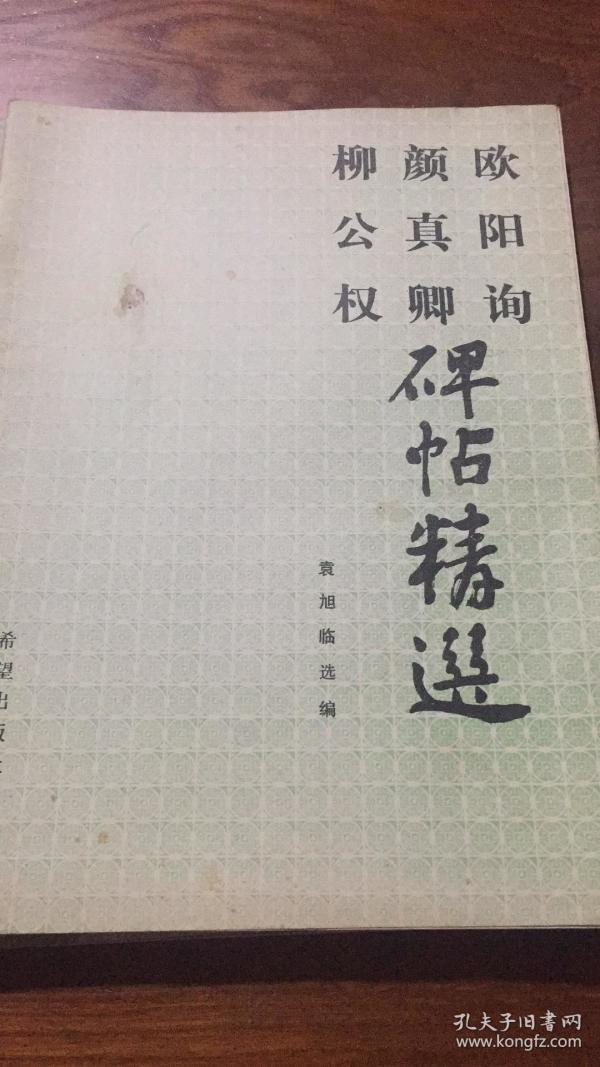 欧阳询
颜真卿
柳公权
碑帖精選
袁旭临选编
希望出版社
孔夫子旧書网
www.kongfz.com